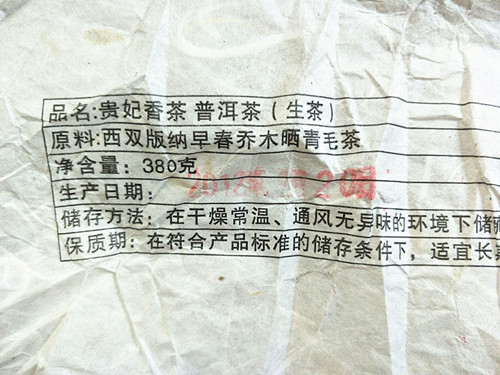 品名:贵妃香茶 普洱茶(生茶)
原料:西双版纳早春乔木晒青毛茶
净含量: 380克
生产日期:
储存方法: 在干燥常温、通风无异味的环境下储
保质期: 在符合产品标准的储存条件下,适宜长